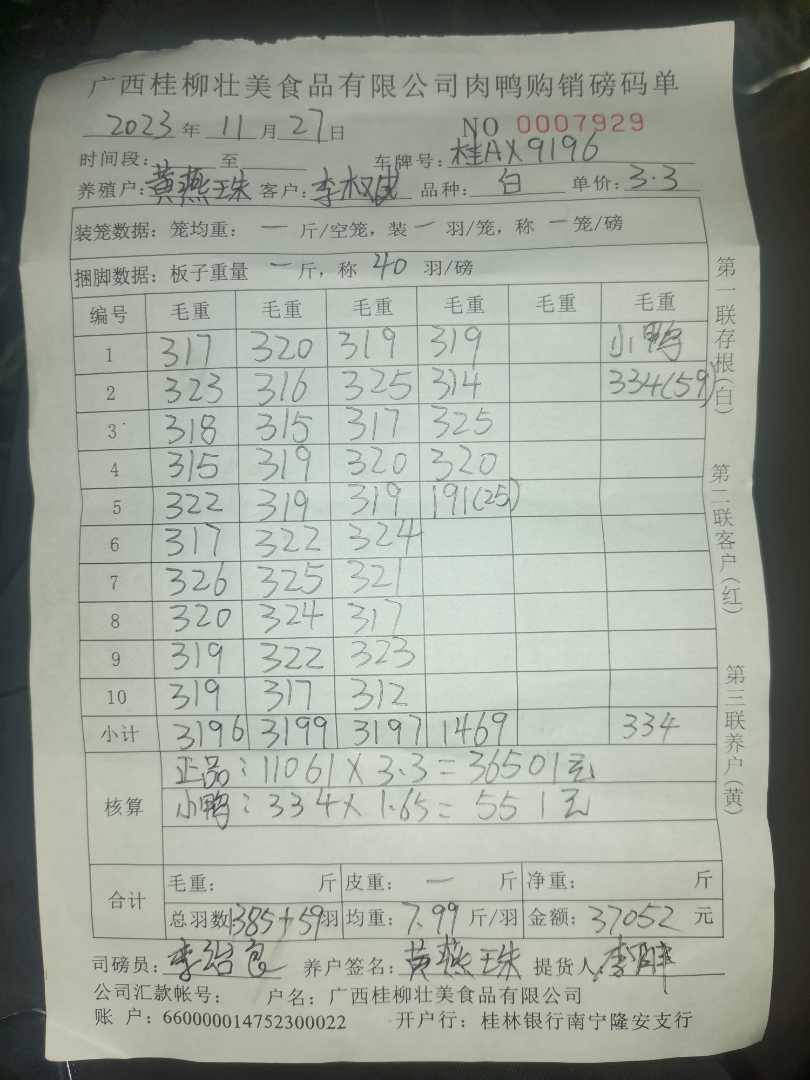 广西桂柳壮美食品有限公司肉鸭购销磅码单
2023年 11月27日 NO 0007929
时间段: 至 车牌号: 桂AX9196
养殖户: 黄燕珠 客户: 李权 品种: 白 单价: 3.3
装笼数据: 笼均重: 一 斤/空笼, 装 一 羽/笼, 称 一 笼/磅
捆脚数据: 板子重量 一 斤, 称 40 羽/磅
编号 毛重 毛重 毛重 毛重 毛重 毛重
1 317 320 319 319 小鸭
2 323 316 325 314 334(59)
3 318 315 317 325
4 315 319 320 320
5 322 319 319 191(25)
6 317 322 324
7 326 325 321
8 320 324 317
9 319 322 323
10 319 317 312
小计 3196 3199 3197 1469 334
核算 正品: 11061×3.3=36501元
小鸭: 334×1.65=551元
合计 毛重: 斤 皮重: 一 斤 净重: 斤
总羽数 1385+59羽 均重: 7.99 斤/羽 金额: 37052 元
司磅员: 李 养户签名: 黄燕珠 提货人: 李胖
公司汇款帐号: 户名: 广西桂柳壮美食品有限公司
账 户: 660000014752300022 开户行: 桂林银行南宁隆安支行
第一联存根(白) 第二联客户(红) 第三联养户(黄)